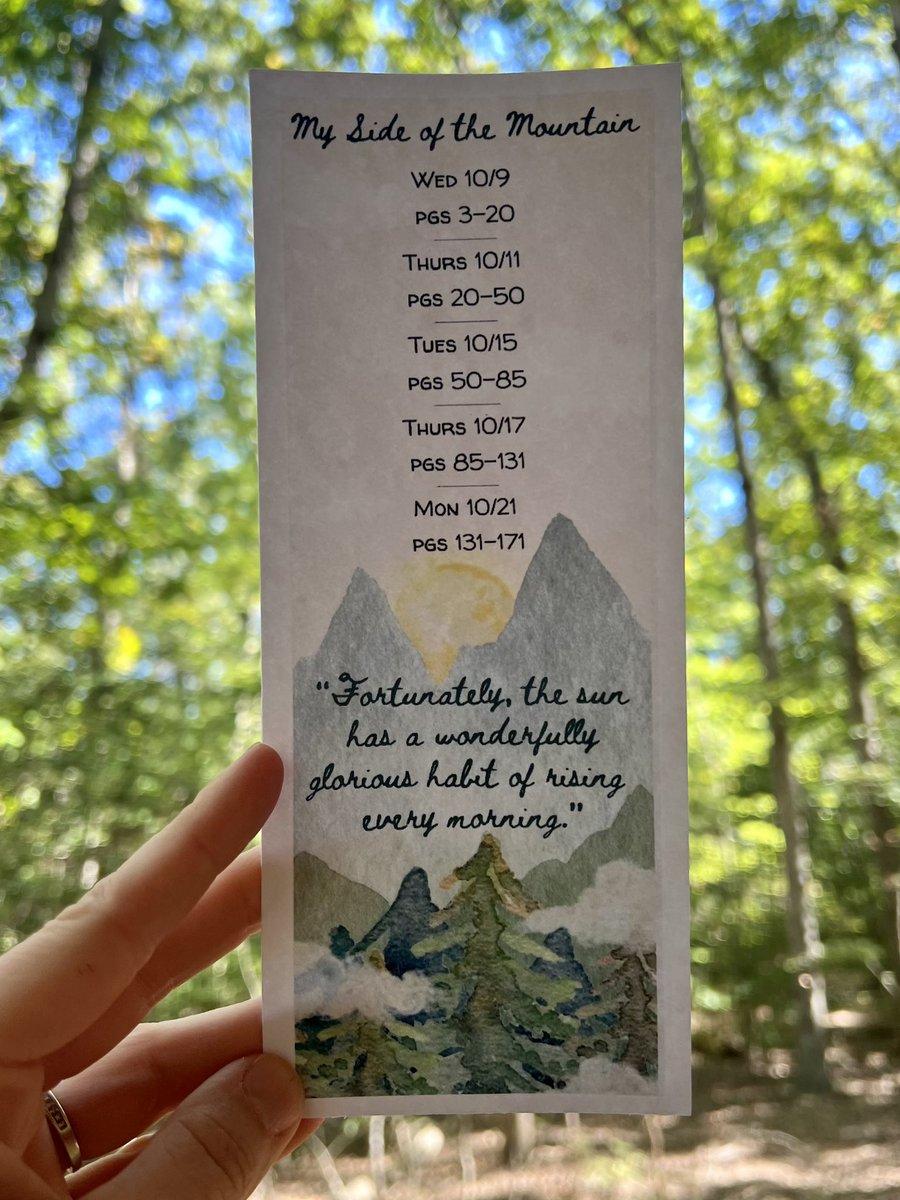 My Side of the Mountain
Wed 10/9
pgs 3–20
Thurs 10/11
pgs 20–50
Tues 10/15
pgs 50–85
Thurs 10/17
pgs 85–131
Mon 10/21
pgs 131–171
"Fortunately, the sun
has a wonderfully
glorious habit of rising
every morning."